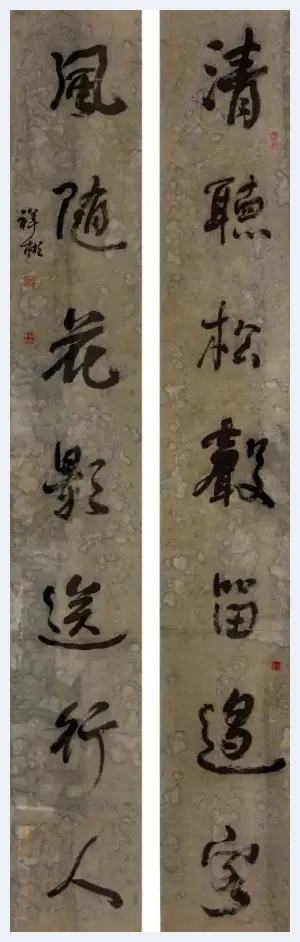 清聽松聲留過客
風隨花影送行人
祥彬